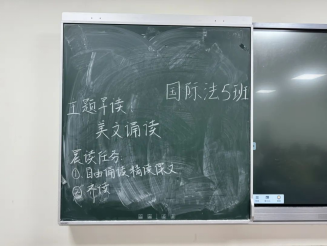 国际法5班
主题导读:
美文诵读
晨读任务:
①自由诵读、摘读课文
②齐读